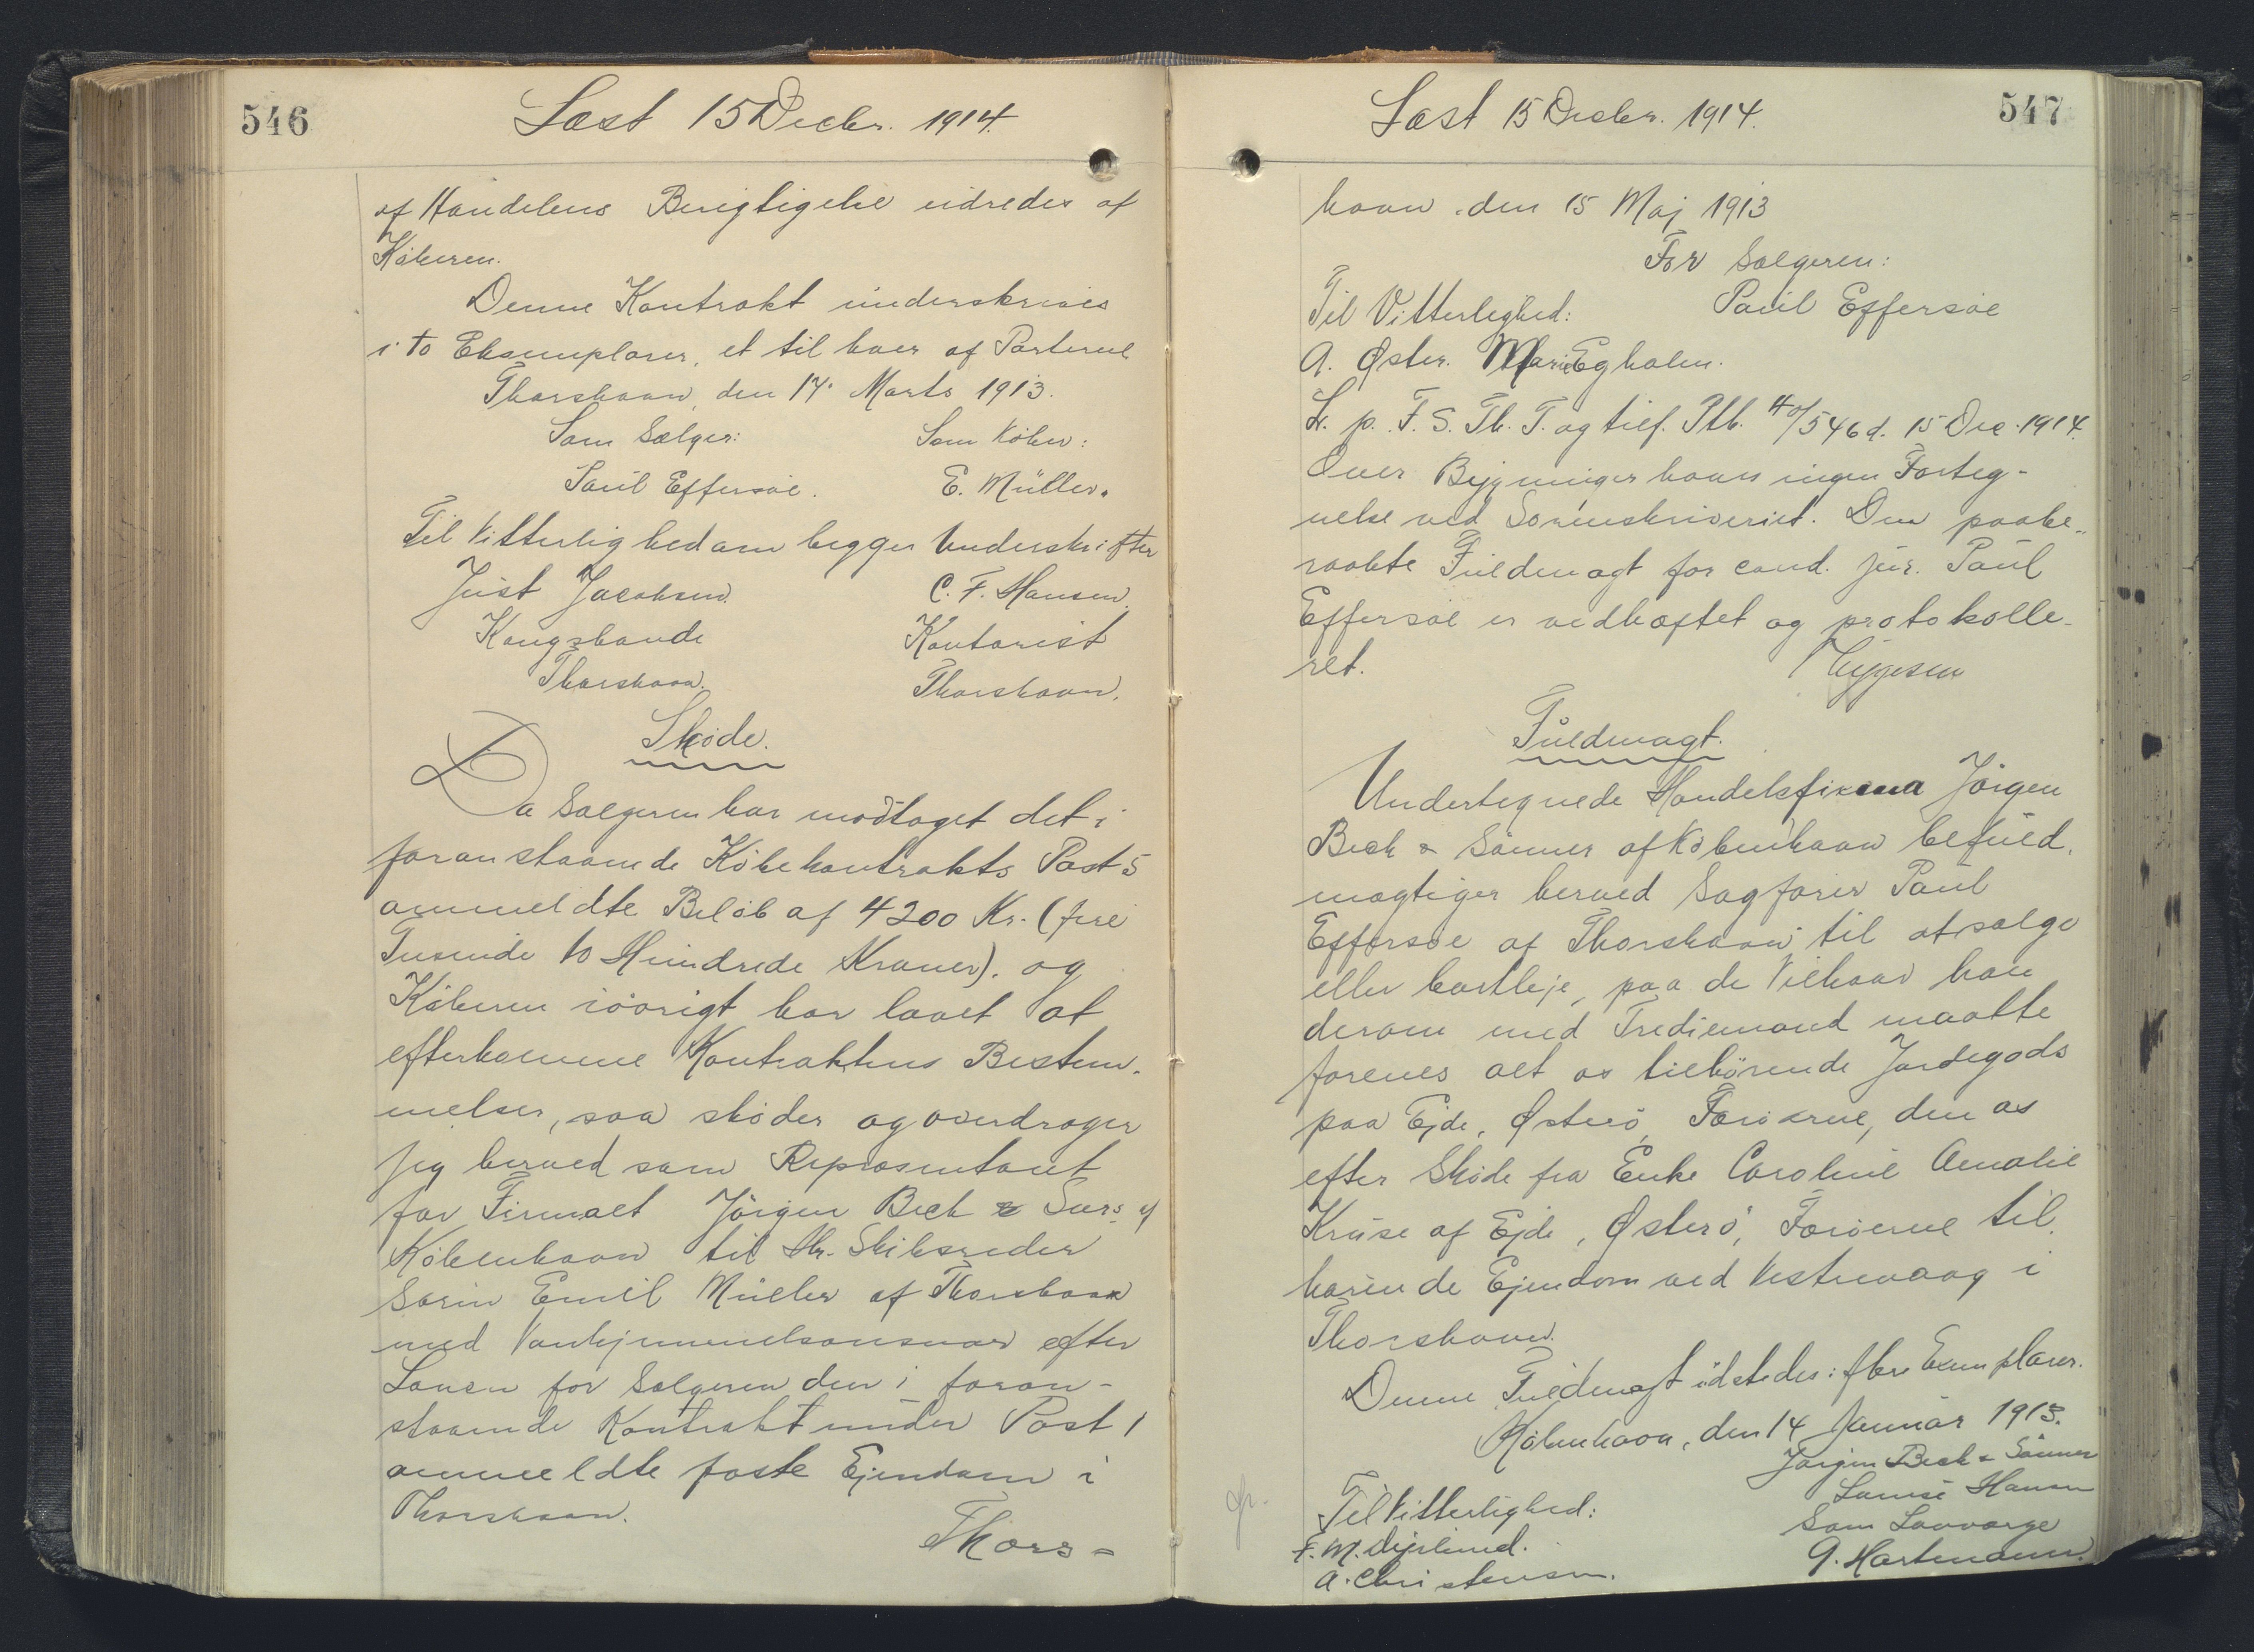 546
Læst 15 Decbr. 1914.
af Handelens Berigtigelse udredes af
Køberen.
Denne Kontrakt underskrives
i to Eksemplarer, et til hver af Parterne
Thorshavn, den 17. Marts 1913.
Som Sælger: Som Køber:
Poul Effersøe. E. Müller.
Til Vitterlighed om begges Underskrifter
Just Jacobsen. C. F. Hansen.
Kongsbonde Kontorist
Thorshavn. Thorshavn.
Skøde.
Da Sælgeren har modtaget det i
foranstaaende Købekontrakts Post 5
ommeldte Beløb af 4200 Kr. (fire
Tusinde to Hundrede Kroner). og
Køberen iøvrigt har lovet at
efterkomme Kontraktens Bestem-
melser, saa skøder og overdrager
jeg herved som Repræsentant
for Firmaet Jörgen Bech & Søns af
København til Hr. Skibsreder
Sørin Emil Müller af Thorshavn
med Vanhjemmelsansvar efter
Loven for Sælgeren den i foran-
staaende Kontrakt under Post 1
ommeldte faste Ejendom i
Thorshavn.
Thors-
Læst 15 Decbr. 1914.
547
havn den 15 Maj 1913
For Sælgeren:
Til Vitterlighed: Poul Effersöe
A. Øster. Marie Egholm.
L. p. F. S. Th. T. og tilf. Ptk. 4 0/546 d. 15 Dec. 1914.
Over Bygninger haves ingen Forteg-
nelse ved Sorenskriveriet. Den paabe-
raabte Fuldmagt for cand. jur. Poul
Effersøe er vedhæftet og protokolle-
ret.
Fuldmagt.
Undertegnede Handelsfirma Jörgen
Bech & Sönner af København befuld-
mægtiger herved Sagfører Poul
Effersøe af Thorshavn til at sælge
eller bortleje, paa de Vilkaar han
derom med Trediemand maatte
forenes alt os tilhörende Jordegods
paa Ejde, Østerö, Færøerne, den os
efter Skøde fra Enke Caroline Amalie
Kruse af Ejde, Østerö, Færöerne til
hørende Ejendom ved Vestrevaag i
Thorshavn.
Denne Fuldmagt udstedes i flere Exemplarer.
København, den 14 Januar 1913.
Jörgen Bech & Sönner
Til Vitterlighed: Louise Hansen
Som Lavværge
G. Hartmann.
A. Christensen.